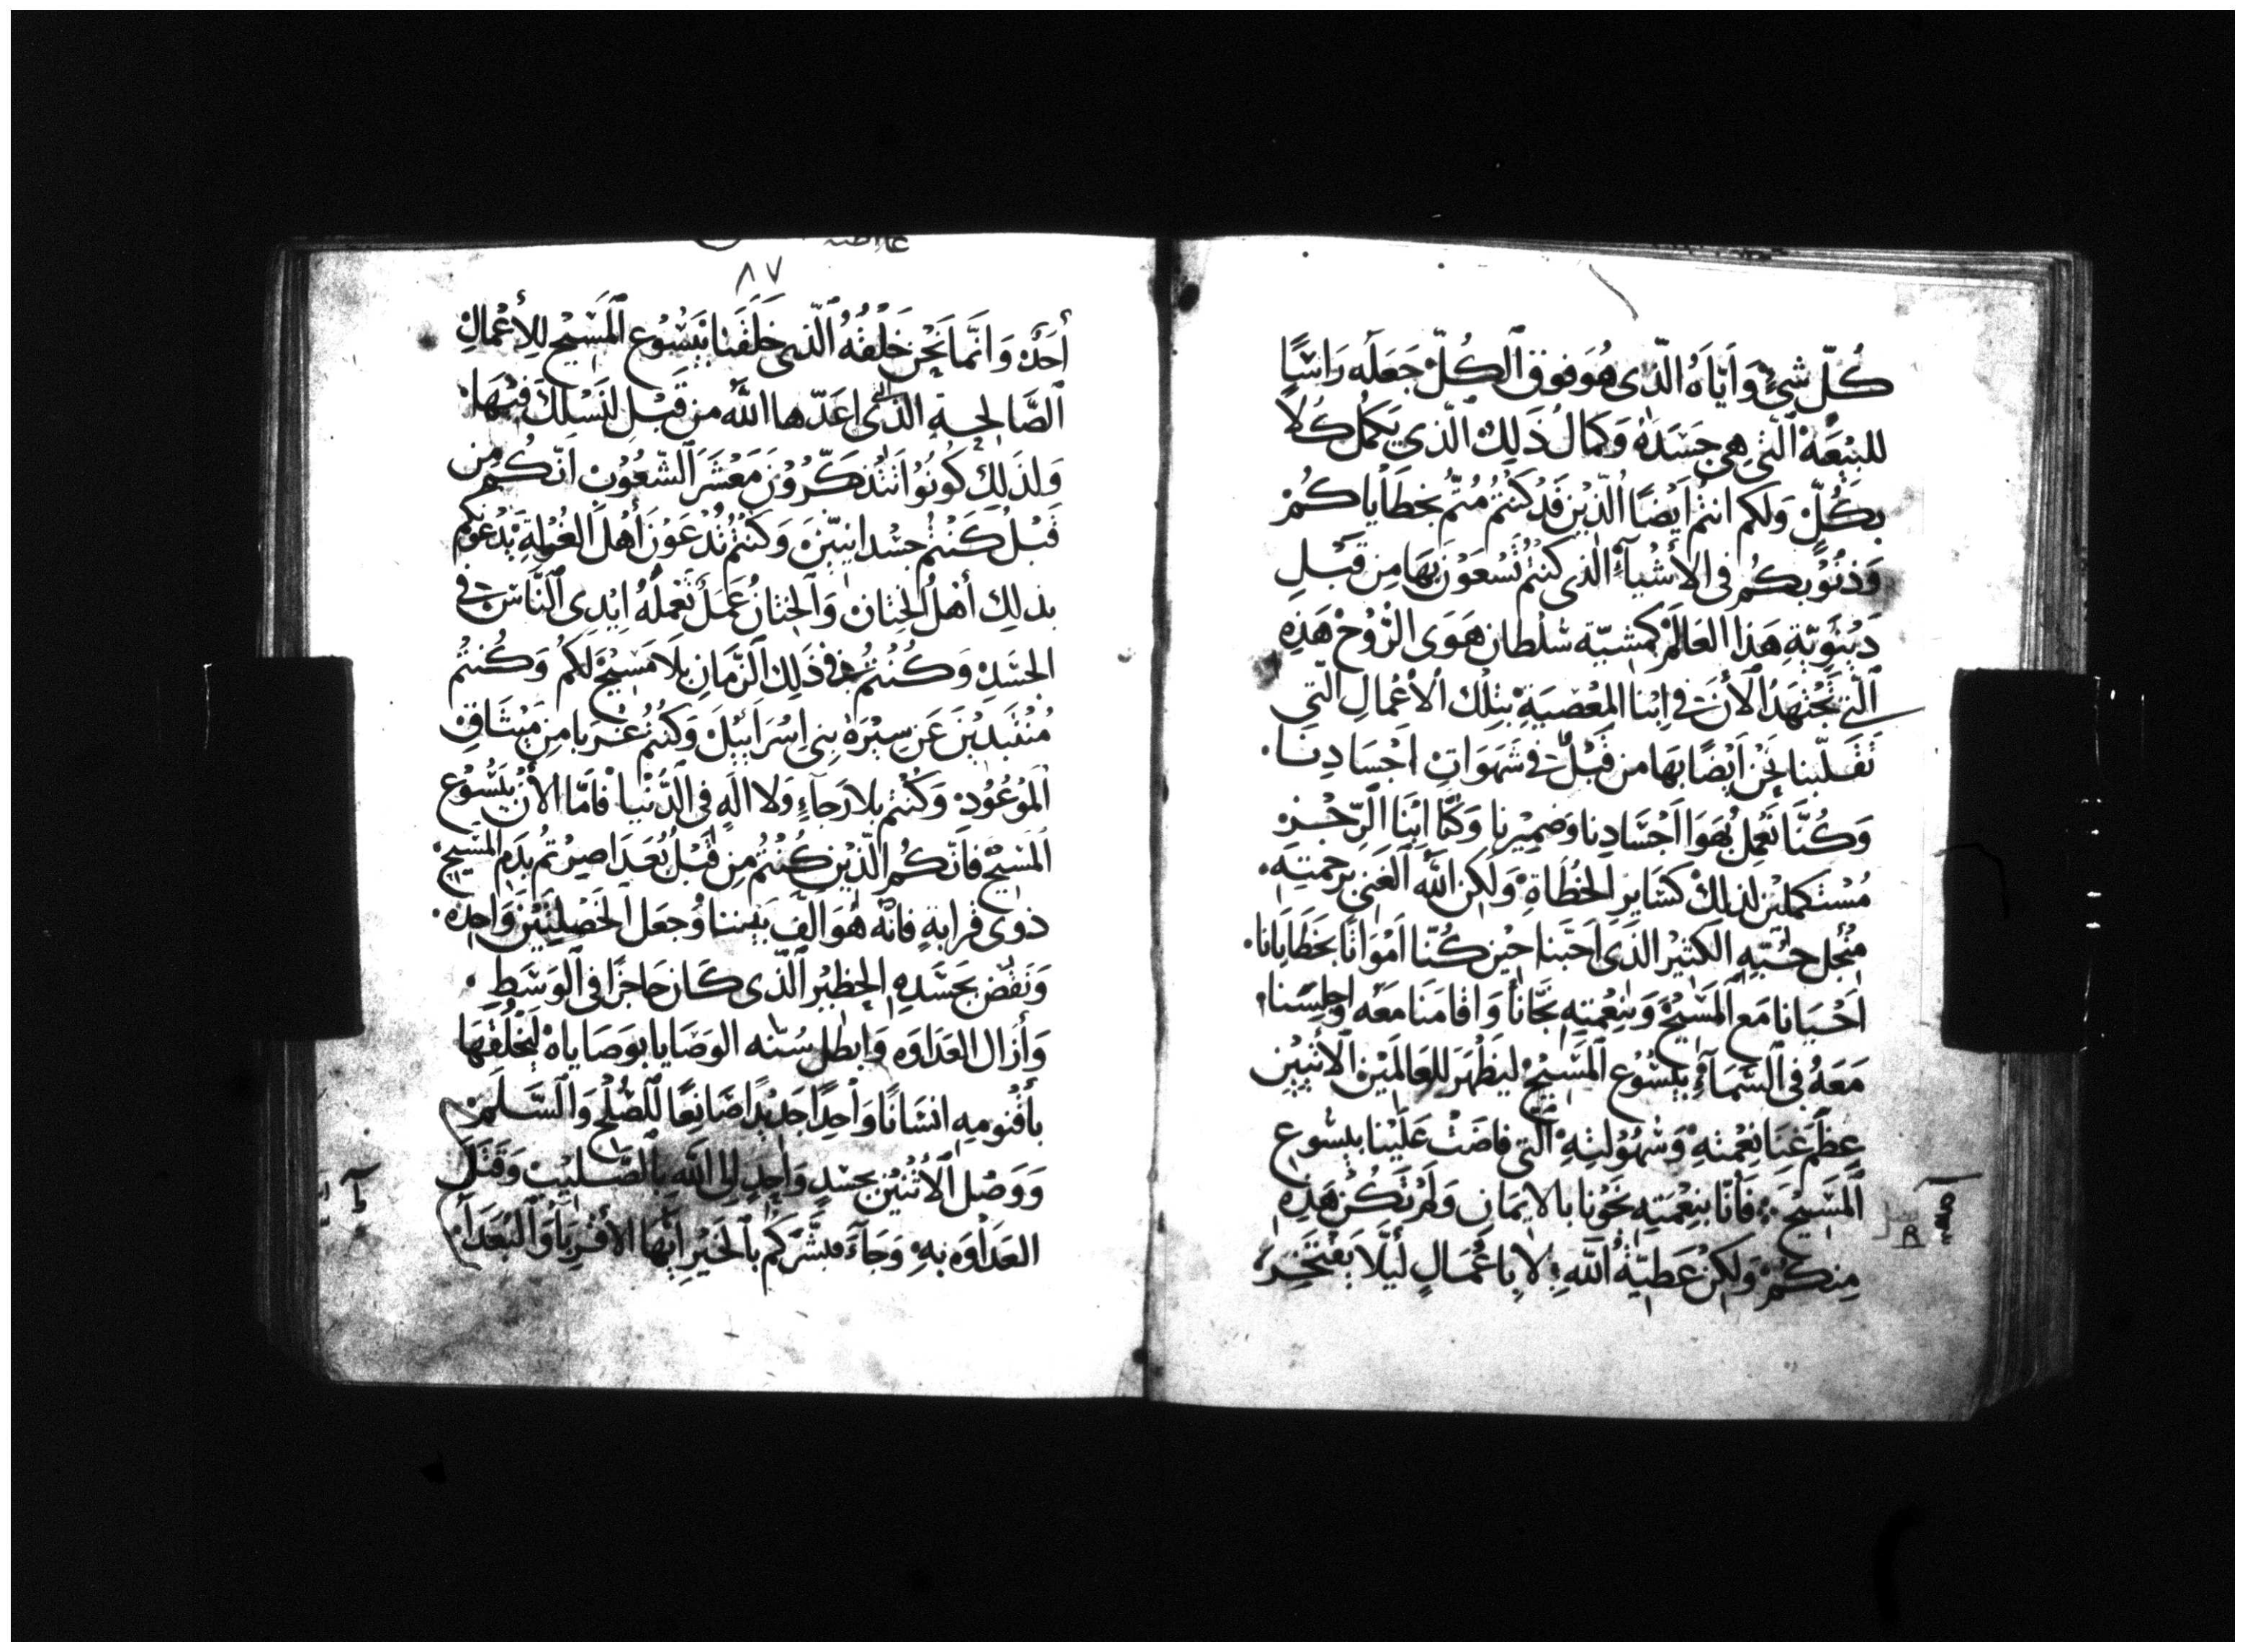 كُلّ شيءٍ وَايَّاهُ الَّذِى هُوَ فوق اَلكُلّ جَعَلَه رَاسًا
للبيْعَة اَلَّتِي هِي جَسَدَهُ وَكمَالُ ذَلِكَ الّذى يَكمُل كُلا
بكُلّ وَلَكم انتُم اَيضًا الّذِين قَد كُنتُم مُتّم بخطَاياكُمْ
وَذنُوبكُم فى الأشيآءِ الّذى كنتُم تَسْعَوْن بَهَا مِن قَبْلِ
دَينَوِيّةِ هَذا العَالَمْ كمَشيّة سُلطان هَوَى الرّوُحْ هَذِهِ
اَلّتِي تَجْتهَدُ اَلأن فى ابْنا المعْصَيَةِ بتِلْك الأعْمالِ الّتِي
تَقَلّبنا نَحْن اَيْضًا بَهَا من قَبْلُ فى شَهَوَاتِ اجْسَادِنا
وَكُنَّا نَعْمِلُ بُهَوَا اَجْسَادِنا وَضَمِيْرنا وَكنَّا ابنَا اَلرِّجْزِ
مُسْتَكملِيْن لِذلِكْ كَسَاير الخُطَاةِ وَلَكِن الله اَلغَنِى برحمتِهِ
مِنْ اجل حُبّهِ الكَثيْر الّذى اَحبّنا حَيْن كُنّا اَمْوَاتًا بخَطَايَانا
اَحْيَانا مَع اَلمَسْيحْ وَبنِعْمتِهِ نجّانا وَاقامَنا مَعَه وَاجلسَنا
مَعَهُ فى السَّمَآءِ بيسُوع المَسْيحْ ليَظْهَر للعَالمَيْن الأتيين
عِظَم غنَا نِعْمتهِ وَسُهُوْلتِهِ الّتى فاضَتْ عَلَيْنا بيسوع
اَلمَسَيحْ فَأنّا بنِعْمَتِهِ نَجَوْنا بالايمَان وَلمْ تَكُنْ هَذِهِ
مِنكُمْ وَلكِنْ عَطيّةُ اَلله لا بِاَعْمَالٍ ليَلّا يَفتَخِر
٨٧
أَحَدٌ وَانَّمَا نَحْن خَلْقُهُ الّذى خَلَقَنا بيَسُوع اَلمَسَيْح للاعْمالِ
اَلصَّالحة الّتى اعَدّها الله من قَبْل لنَسْلكَ فيْهَا
وَلذلِكَ كُونُوا تتَذكّرُوْن مَعْشَرَ اَلشّعُوْبِ اَنّكُم من
قَبْل كُنتُم جسْدانيّين وَكنتُم تُدْعَوْن أهْل اَلغُرْلةِ يَدْعُوكم
بذلِك أهْل الخِتان وَالختانُ عَمَلُ تَعْملُهُ ايْدى النَّاس فى
الجسَدِ وَكُنتُم فى ذَلِكَ اَلزّمَانِ بلا مَسْيحْ لَكُمْ وَكُنتُم
مُنْتَبذيْن عَن سيْرَة بنِى اسْرَاييْلَ وَكنتُم غُرَبا مِن مَيْثاقِ
الموْعُودْ وَكنتم بلا رَجآءٍ وَلا الَهِ فى الدّنْيا فامّا الأن بيَسُوع
المسْيح فانّكُم الّذِين كنتُم مِن قَبْلُ بُعَدَا صِرْتُم بدَم المَسْيح
ذوى قرابةٍ فانّه هُوَ الّف بَيننا وُجعَل الخَصْلتَيْن وَاحِدة
وَنَقَض بجَسَدِهِ الحظيْر الّذى كَان حَاجزًا فى الوَسَطِ
وَأزَال العَدَاوَة وَابطل سُنّه الوَصَايا بوَصَاياهْ لَيَخْلُقْهَا
بأقنُومِهِ انسَانًا وَاحِدًا جَديْدًا صَانِعًا للصُّلح وَالسَّلمْ
وَوَصّل اَلأثنَيْن بجسَدٍ وَاحِدٍ الى الله بالصّليْب وَقَتَل
العَدَاوَة بهِ وَجَآءَ مبَشّركَم بالخَيْرِ ايّهَا الأقْربَا وَالبُعَدَا